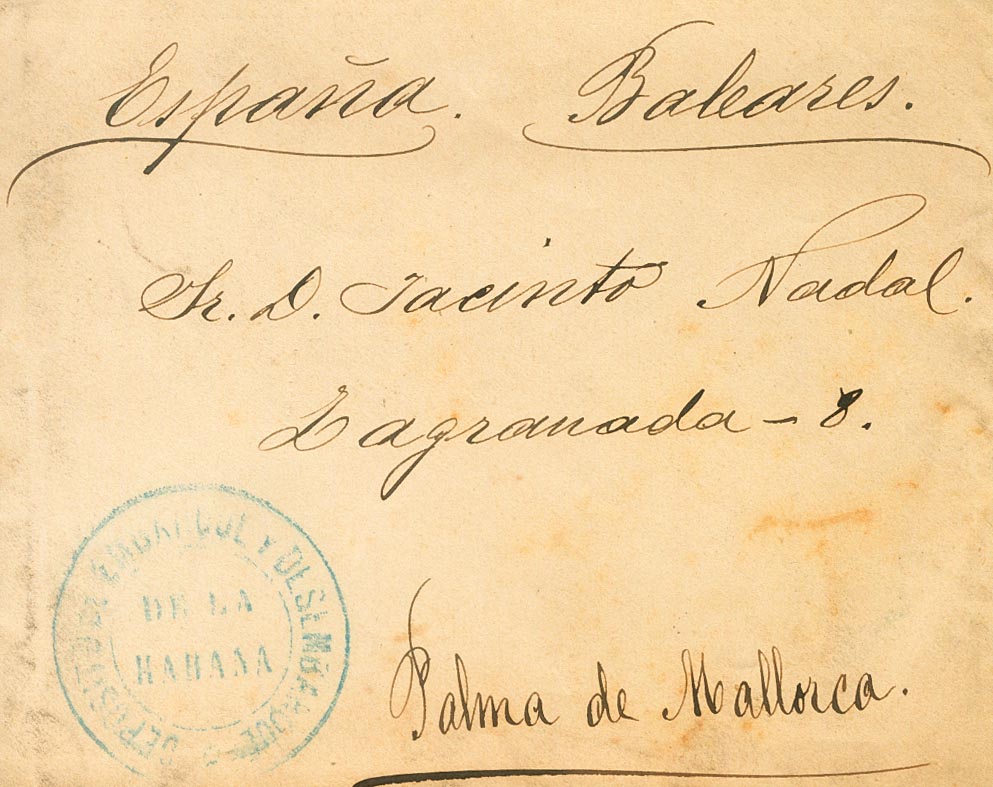 España. Baleares.
Sr. D. Jacinto Nadal.
Lagranada - 8.
DEPOSITO DE EMBARQUE Y DESEMBARQUE
DE LA
HABANA
Palma de Mallorca.